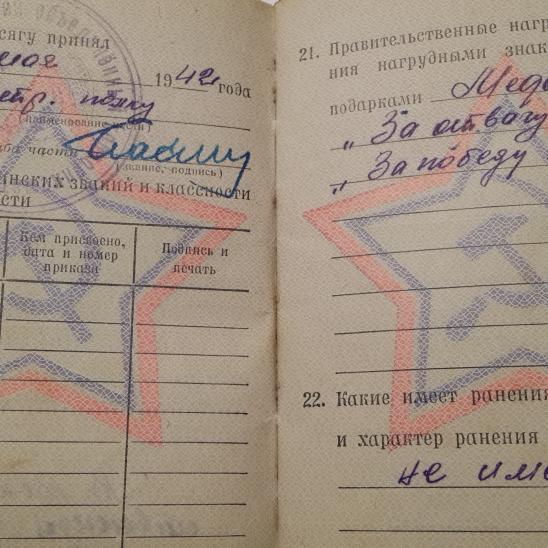 сягу принял
мая 1942 года
стр. полку
(наименование части)
ба части
(звание, подпись)
инских званий и классности
сти
Кем присвоено,
дата и номер
приказа
Подпись и
печать
21. Правительственные нагр
ния нагрудными знак
подарками Меда
„За отвагу
„За победу
22. Какие имеет ранения
и характер ранения
не име